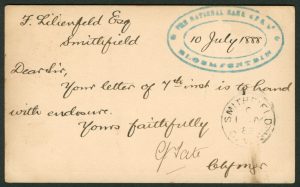 F. Lilienfeld Esq
Smithfield
THE NATIONAL BANK
10 July 1888
BLOEMFONTEIN
Dear Sir,
Your letter of 7th inst is to hand
with enclosure.
Yours faithfully
SMITHFIELD